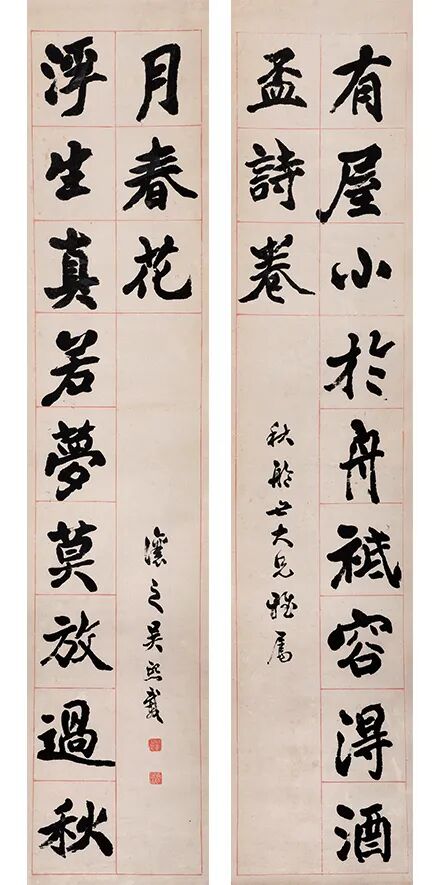 有屋小於舟祗容得酒
盃詩卷
秋舲世大兄雅屬
浮生真若夢莫放過秋
月春花
讓之吳熙載